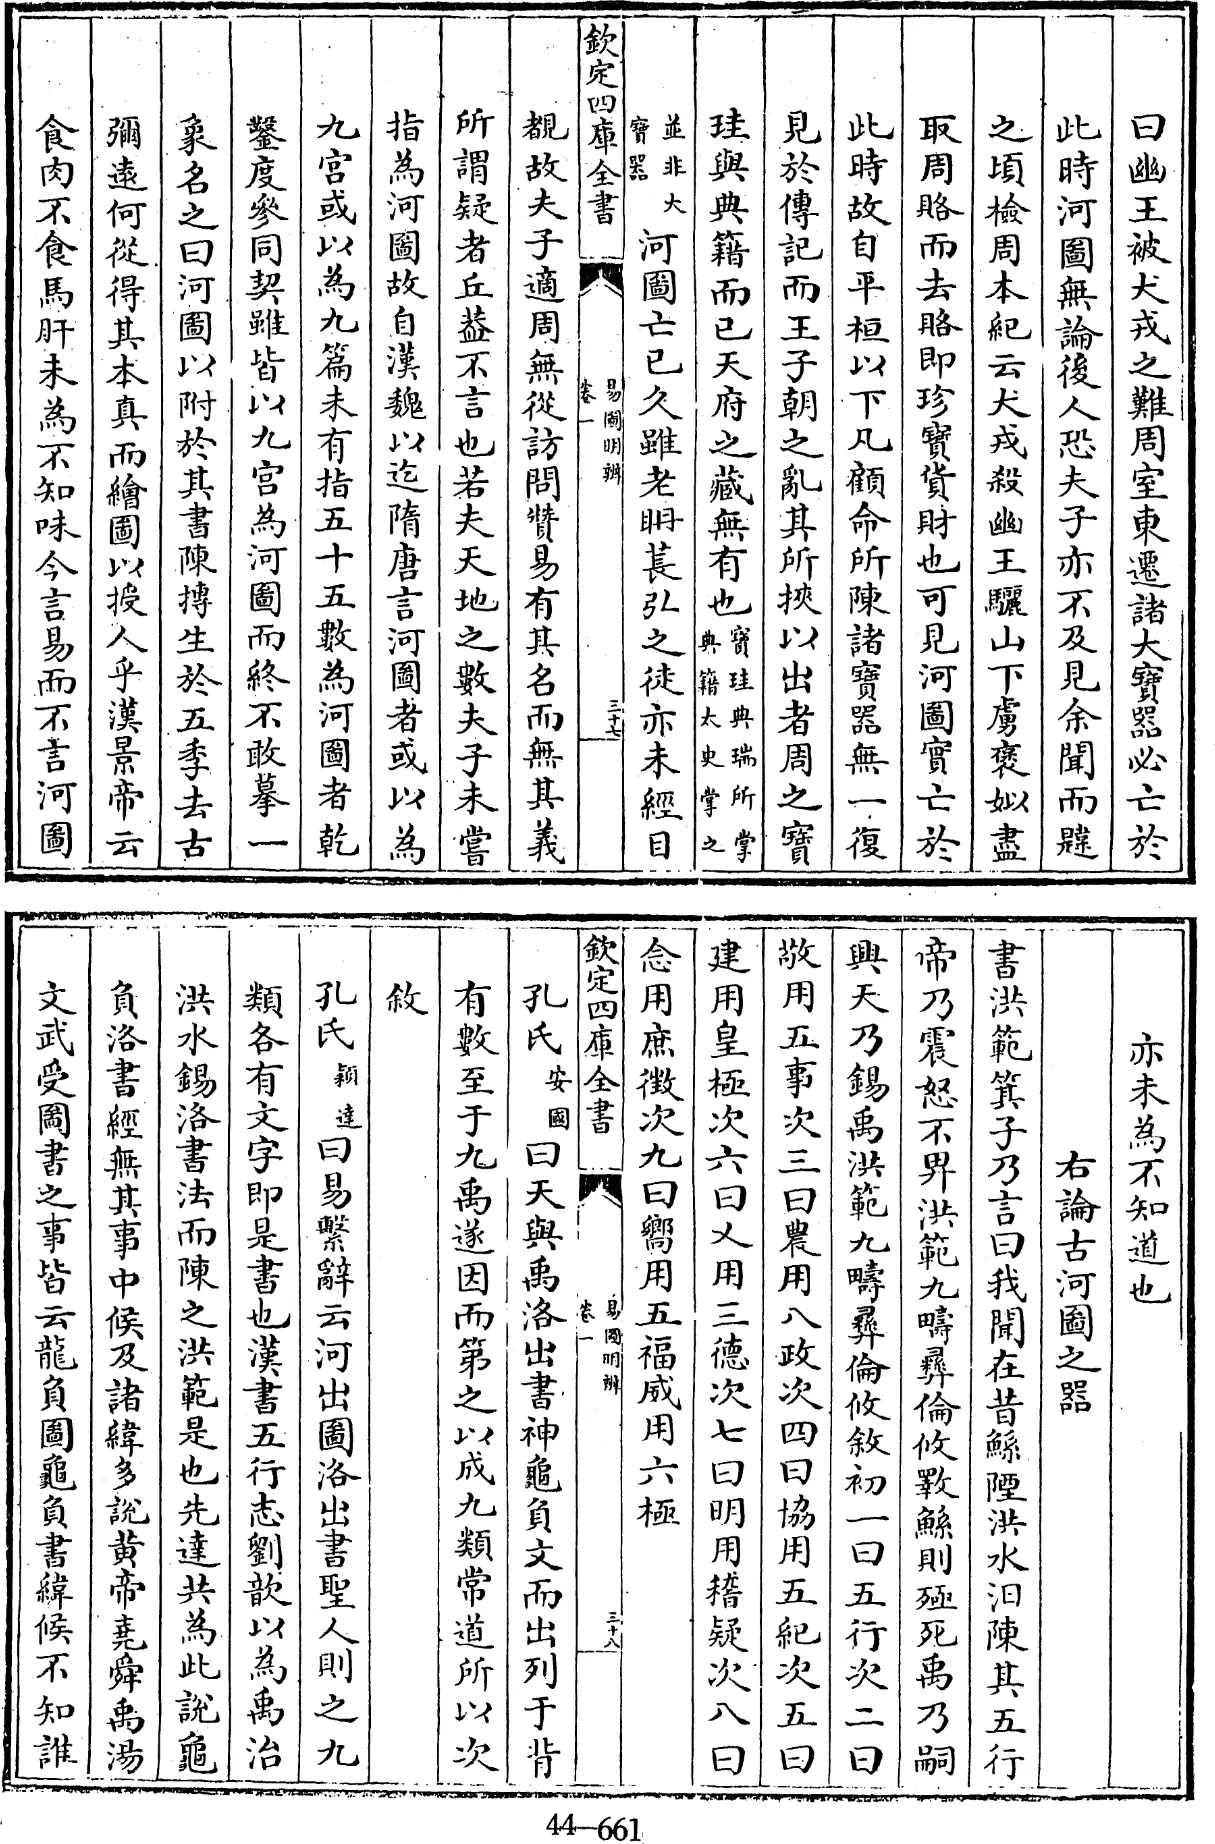 曰幽王被犬戎之難周室東遷諸大寶器必亡於
此時河圖無論後人恐夫子亦不及見余聞而韙
之頃檢周本紀云犬戎殺幽王驪山下虜褒姒盡
取周賂而去賂即珍寶貨財也可見河圖實亡於
此時故自平桓以下凡顧命所陳諸寶器無一復
見於傳記而王子朝之亂其所挾以出者周之寶
珪與典籍而已天府之藏無有也寶珪典瑞所掌典籍太史掌之
並非大寶器河圖亡已久雖老耼萇弘之徒亦未經目
欽定四庫全書
易圖明辨
卷一
三十七
覩故夫子適周無從訪問贊易有其名而無其義
所謂疑者丘葢不言也若夫天地之數夫子未嘗
指為河圖故自漢魏以迄隋唐言河圖者或以為
九宮或以為九篇未有指五十五數為河圖者乾
鑿度參同契雖皆以九宮為河圖而終不敢摹一
象名之曰河圖以附於其書陳摶生於五季去古
彌遠何從得其本真而繪圖以授人乎漢景帝云
食肉不食馬肝未為不知味今言易而不言河圖
亦未為不知道也
右論古河圖之器
書洪範箕子乃言曰我聞在昔鯀陻洪水汩陳其五行
帝乃震怒不畀洪範九疇彛倫攸斁鯀則殛死禹乃嗣
興天乃錫禹洪範九疇彛倫攸敘初一曰五行次二曰
敬用五事次三曰農用八政次四曰協用五紀次五曰
建用皇極次六曰乂用三德次七曰明用稽疑次八曰
念用庶徵次九曰嚮用五福威用六極
欽定四庫全書
易圖明辨
卷一
三十八
孔氏安國曰天與禹洛出書神龜負文而出列于背
有數至于九禹遂因而第之以成九類常道所以次
敘
孔氏穎達曰易繫辭云河出圖洛出書聖人則之九
類各有文字即是書也漢書五行志劉歆以為禹治
洪水錫洛書法而陳之洪範是也先達共為此說龜
負洛書經無其事中候及諸緯多說黃帝堯舜禹湯
文武受圖書之事皆云龍負圖龜負書緯候不知誰
44—661